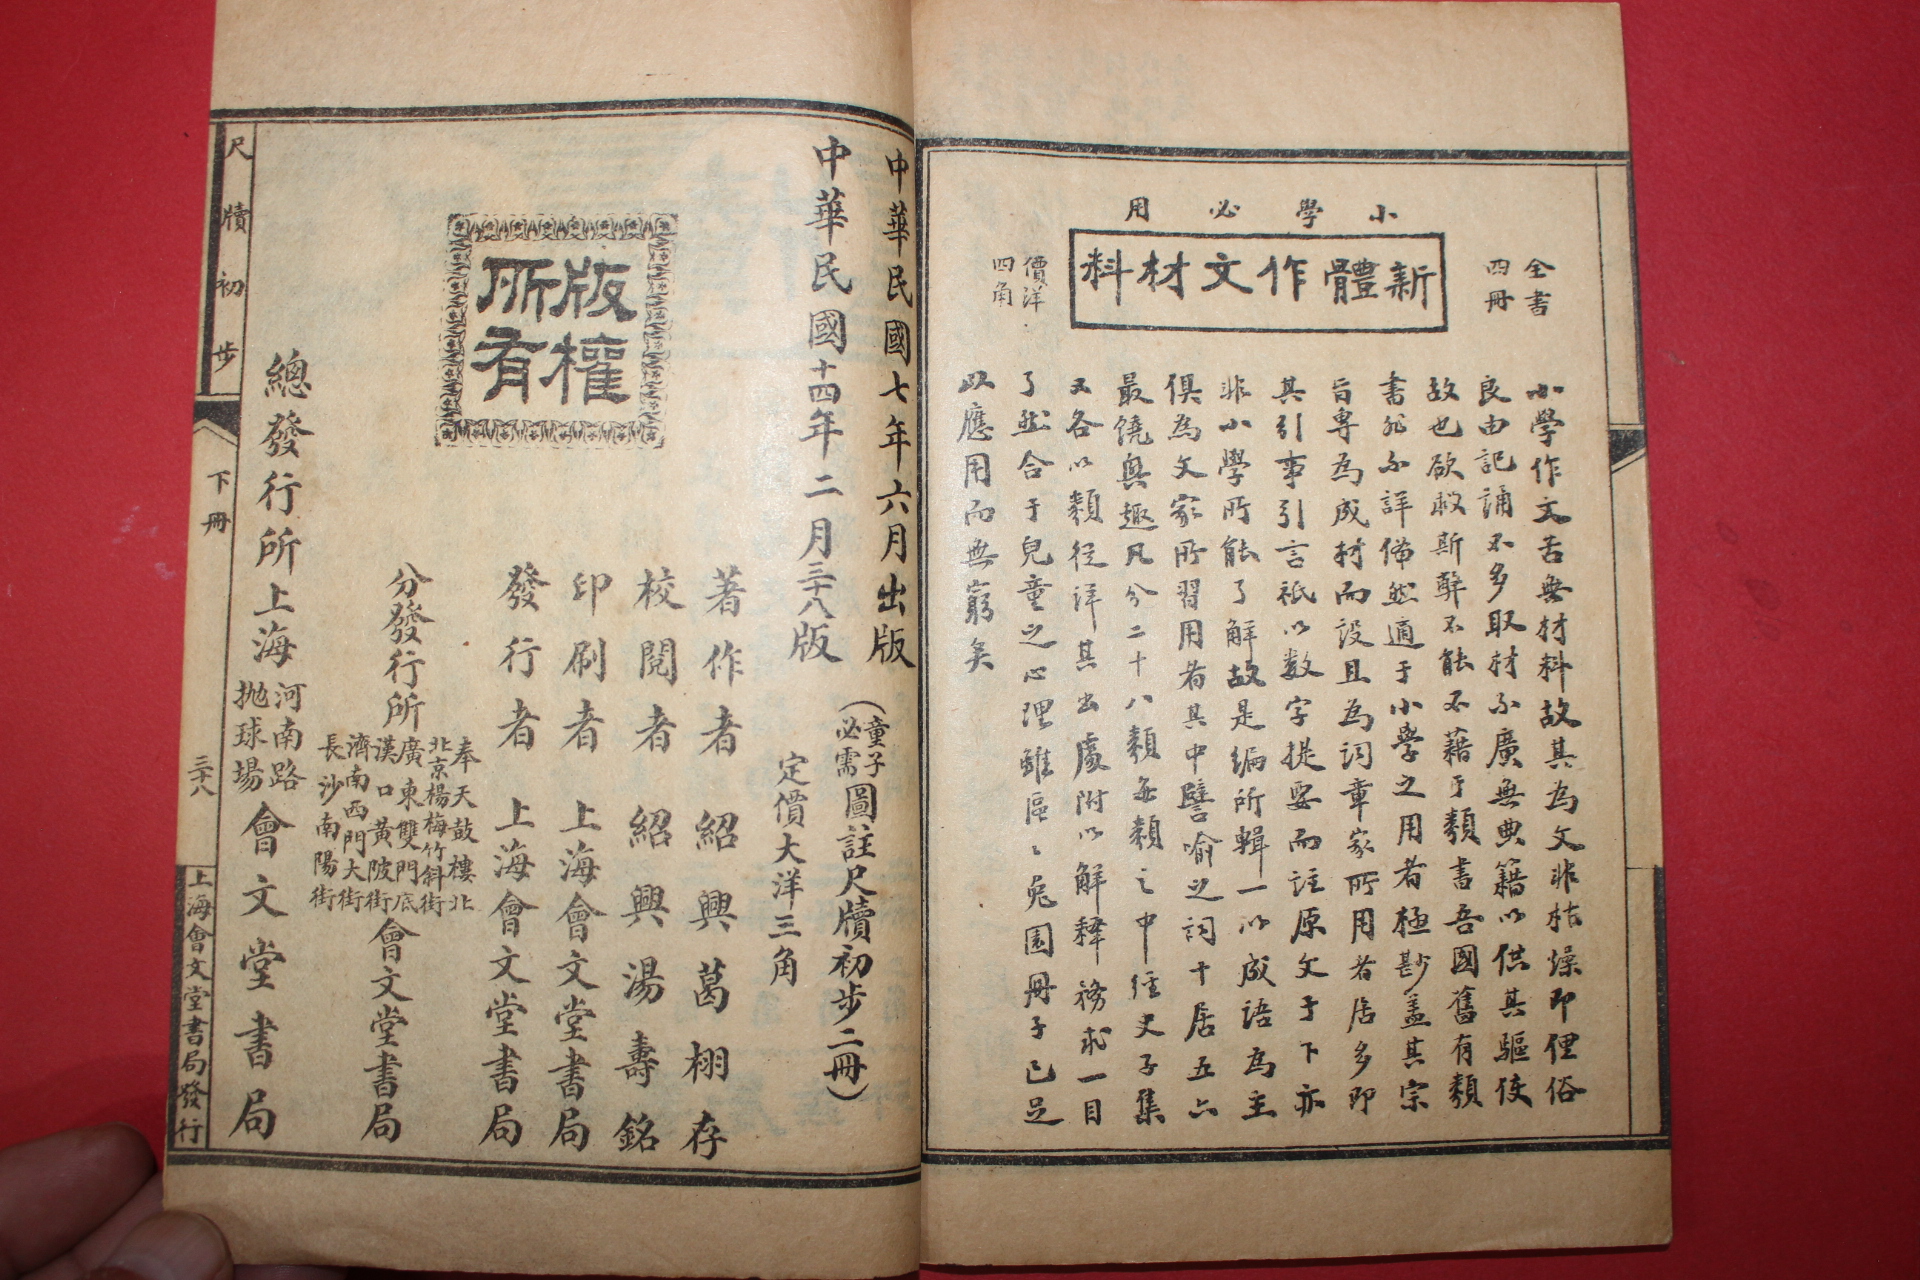 小學必用
新體作文材料
全書四冊
價洋四角
小學作文苦無材料故其為文非枯燥即俚俗
良由記誦不多取材不廣無典籍以供其驅使
故也欲救斯弊不能不藉于類書吾國舊有類
書非不詳備然適于小學之用者極尠蓋其宗
旨專為成材而設且為詞章家所用者居多即
其引事引言祇以數字提要而註原文于下亦
非小學所能了解故是編所輯一以成語為主
俱為文家所習用者其中譬喻之詞十居五六
最饒興趣凡分二十八類每類之中經史子集
又各以類從詳其出處附以解釋務求一目
了然合于兒童之心理雖區區兔園冊子已足
以應用而無窮矣
中華民國七年六月出版
中華民國十四年二月三十八版
(童子必需圖註尺牘初步二冊)
定價大洋三角
版權所有
著作者 紹興葛栩存
校閱者 紹興湯壽銘
印刷者 上海會文堂書局
發行者 上海會文堂書局
分發行所
奉天鼓樓北
北京楊梅竹斜街
廣東雙門底
漢口黃陂街
濟南西門大街
長沙南陽街
會文堂書局
總發行所上海
河南路
拋球場
會文堂書局
尺牘初步
下冊
三十八
上海會文堂書局發行